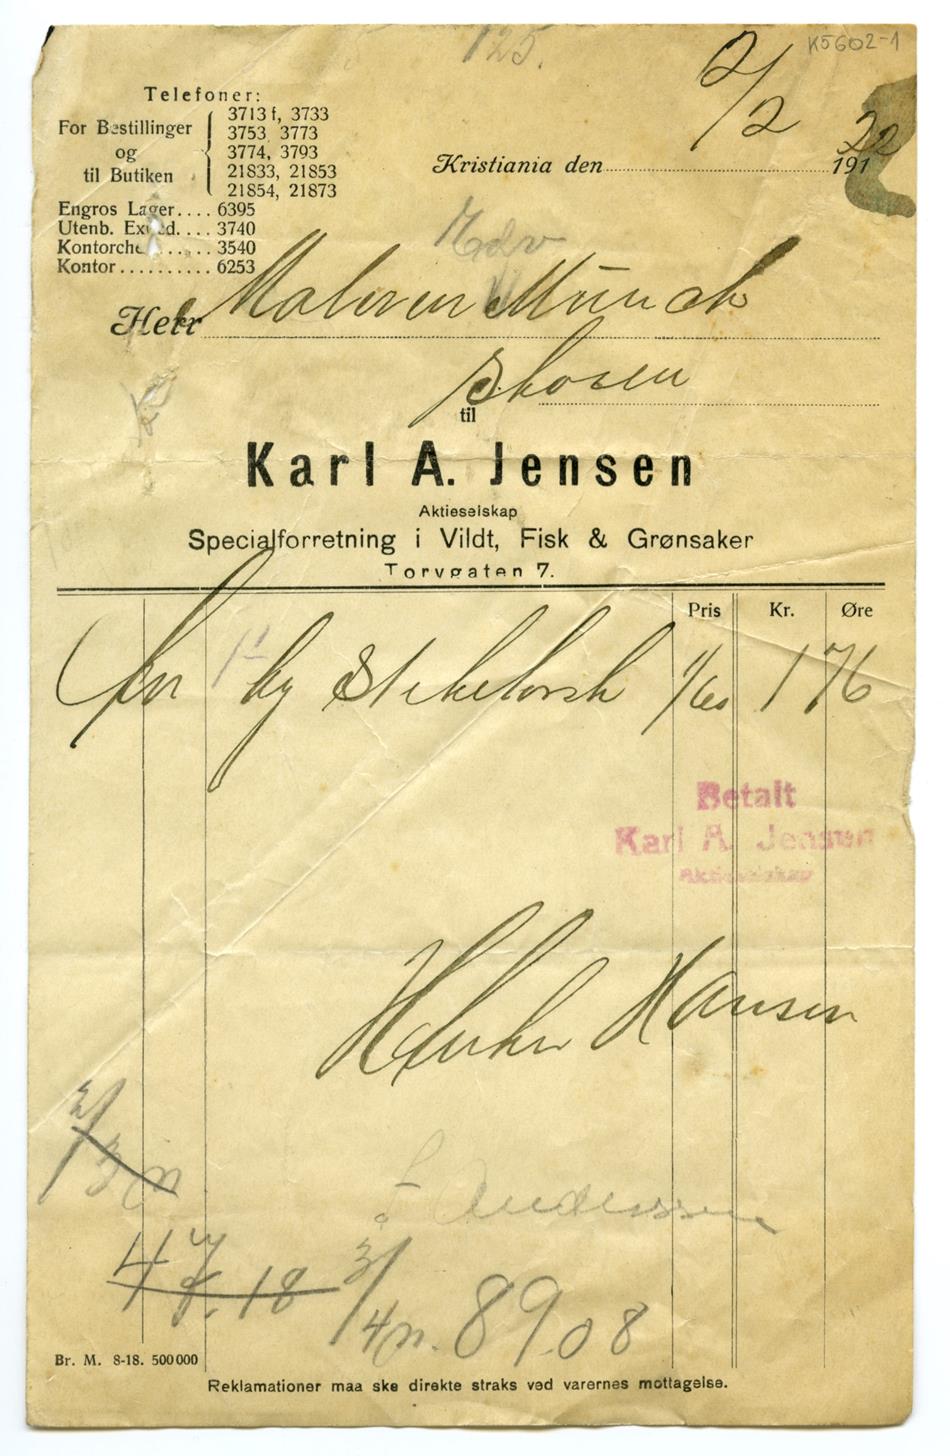 K5602-1
125.
2/2 22
Telefoner:
For Bestillinger
og
til Butiken
3713 f, 3733
3753 3773
3774, 3793
21833, 21853
21854, 21873
Kristiania den 191
Engros Lager.... 6395
Utenb. Exped.... 3740
Kontorche...... 3540
Kontor.......... 6253
Edv
Herr Maleren Münch
Skøien
til
Karl A. Jensen
Aktieselskap
Specialforretning i Vildt, Fisk & Grønsaker
Torvgaten 7.
Pris Kr. Øre
for 11 kg Steketorsk 1/60 1 76
Betalt
Karl A. Jensen
Aktieselskap
Hansen
2/3 n
Anderssen
47.18 3/4 n. 89.08
Br. M. 8-18. 500 000
Reklamationer maa ske direkte straks ved varernes mottagelse.